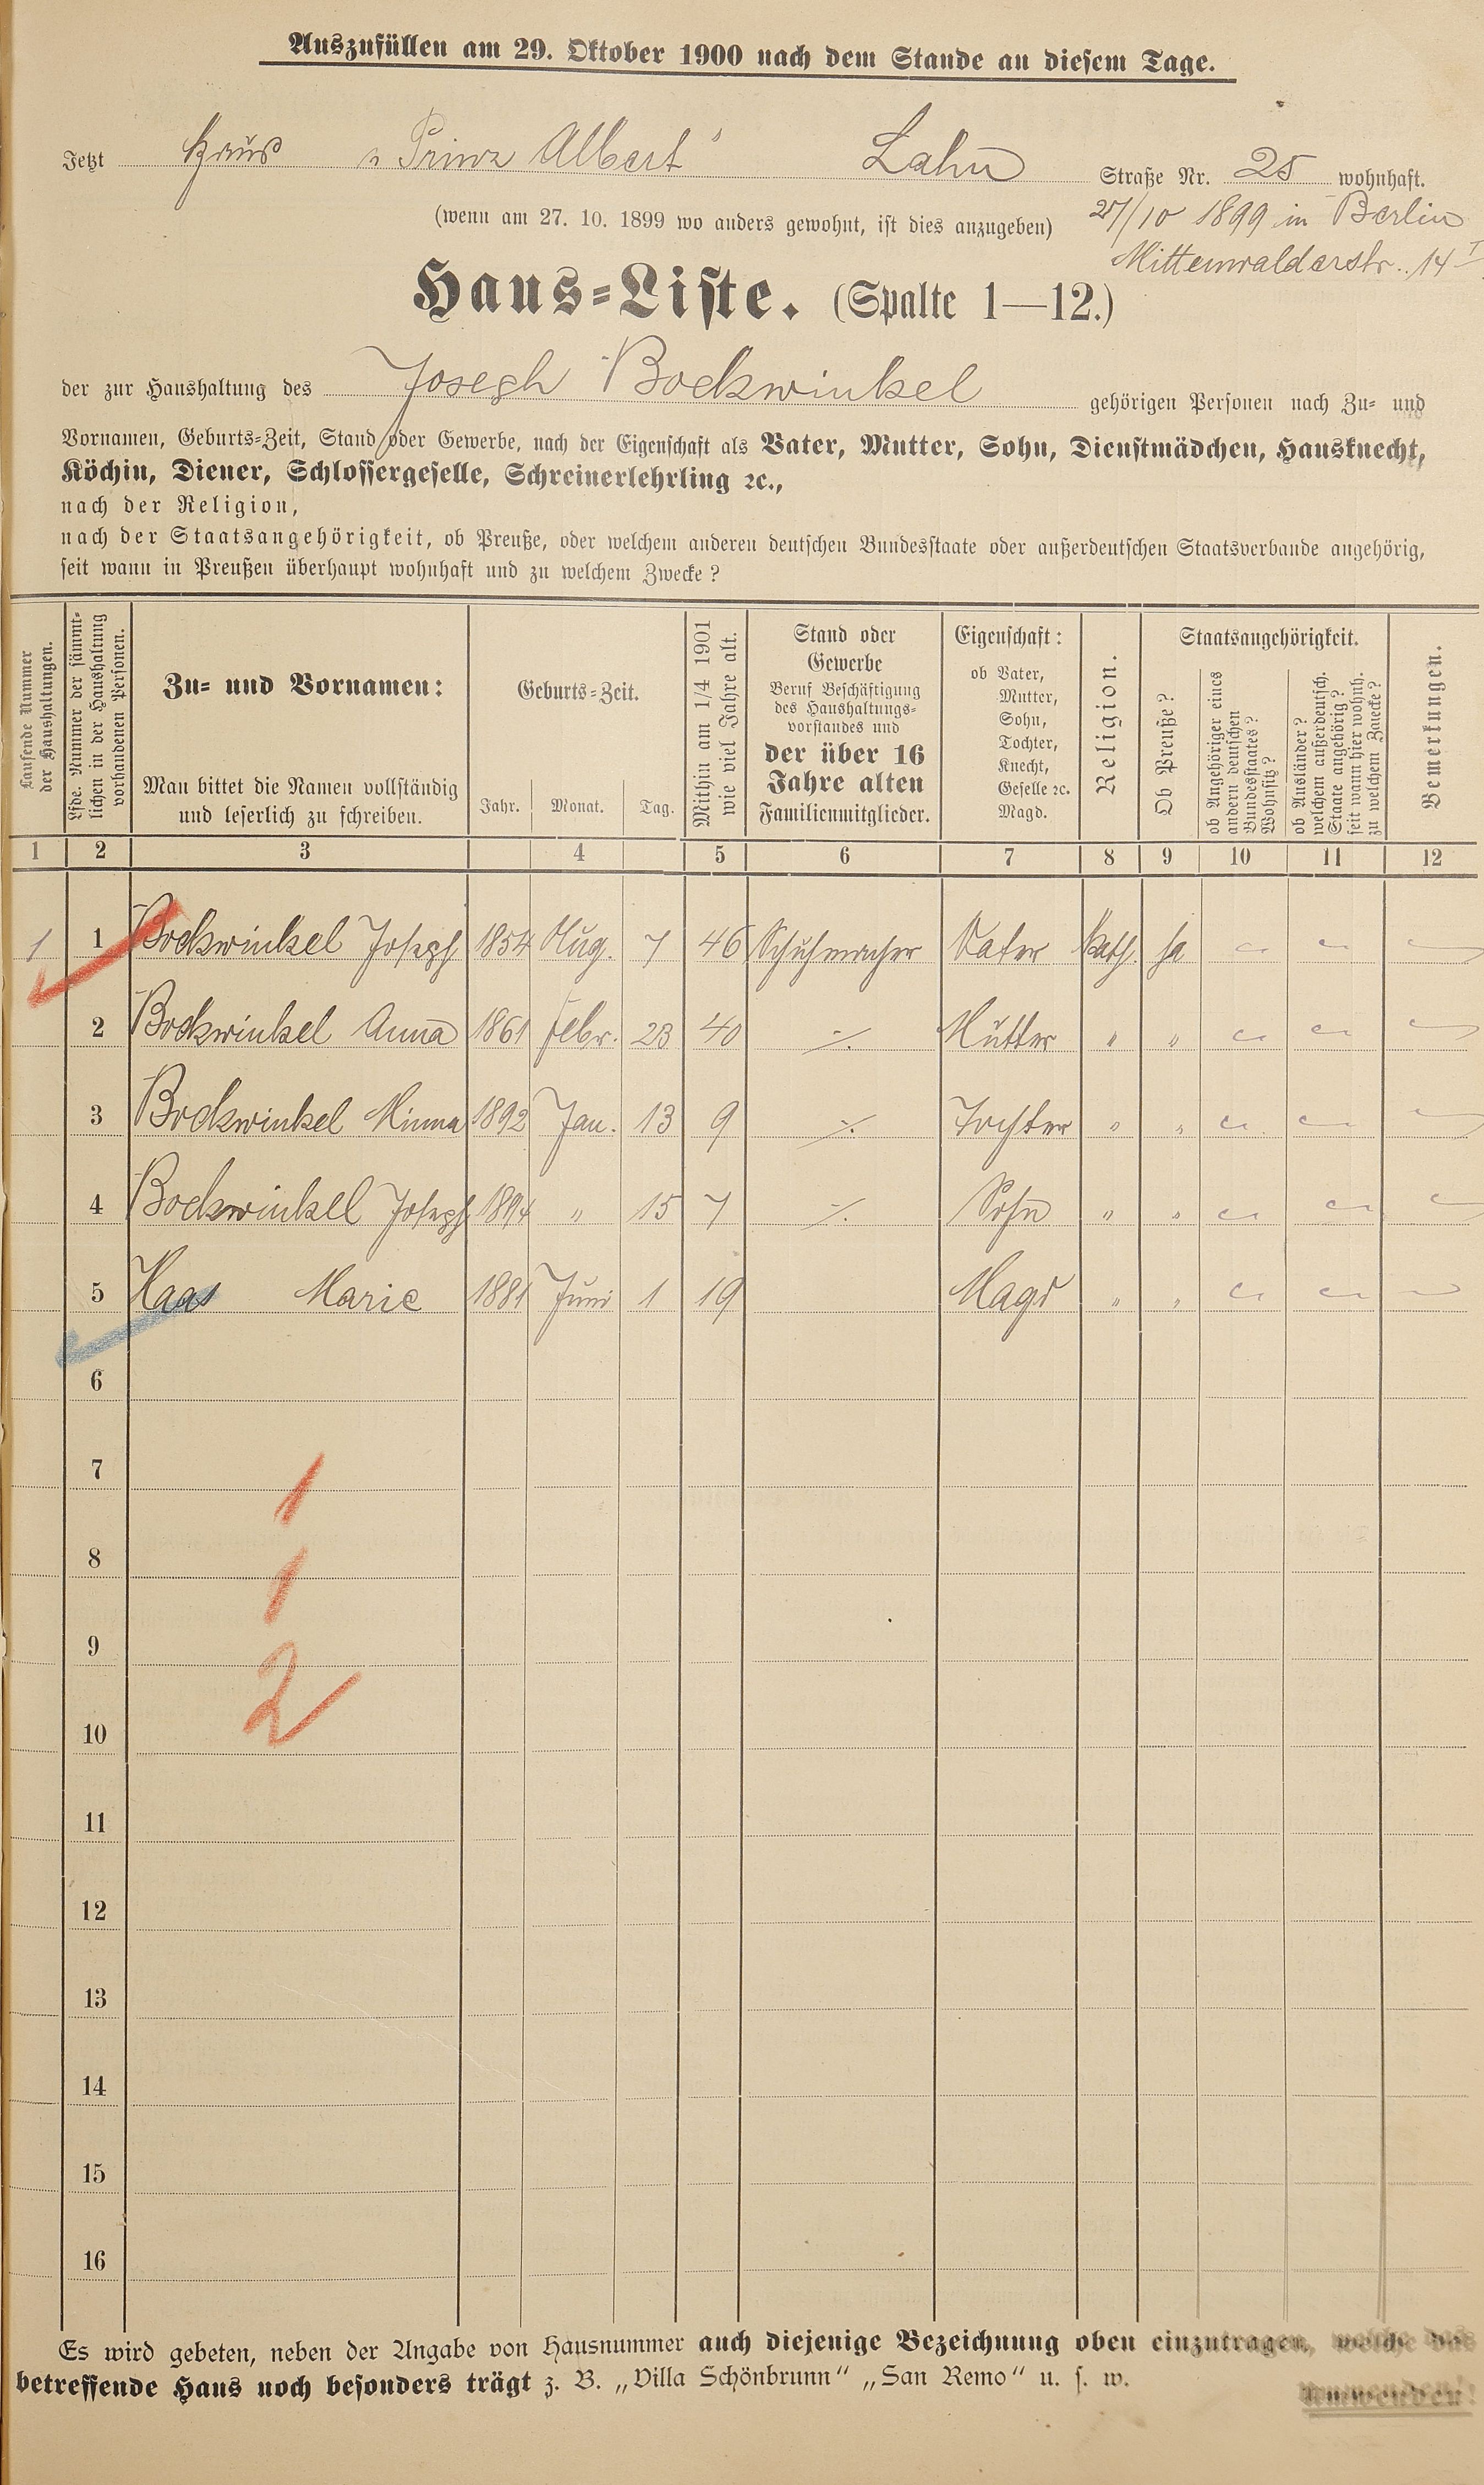 Auszufüllen am 29. Oktober 1900 nach dem Stande an diesem Tage.
Jetzt Haus „Prinz Albert" Lahn Straße Nr. 25 wohnhaft.
(wenn am 27. 10. 1899 wo anders gewohnt, ist dies anzugeben) 27/10 1899 in Berlin
Mittenwalderstr. 14 I
Haus-Liste. (Spalte 1—12.)
der zur Haushaltung des Joseph Bockwinkel gehörigen Personen nach Zu- und
Vornamen, Geburts-Zeit, Stand oder Gewerbe, nach der Eigenschaft als Vater, Mutter, Sohn, Dienstmädchen, Hausknecht,
Köchin, Diener, Schlossergeselle, Schreinerlehrling ꝛc.,
nach der Religion,
nach der Staatsangehörigkeit, ob Preuße, oder welchem anderen deutschen Bundesstaate oder außerdeutschen Staatsverbande angehörig,
seit wann in Preußen überhaupt wohnhaft und zu welchem Zwecke?
Laufende Nummer
der Haushaltungen.
Lfde. Nummer der sämmt-
lichen in der Haushaltung
vorhandenen Personen.
Zu- und Vornamen:
Man bittet die Namen vollständig
und leserlich zu schreiben.
Geburts-Zeit.
Jahr. Monat. Tag.
Mithin am 1/4 1901
wie viel Jahre alt.
Stand oder
Gewerbe
Beruf Beschäftigung
des Haushaltungs-
vorstandes und
der über 16
Jahre alten
Familienmitglieder.
Eigenschaft:
ob Vater,
Mutter,
Sohn,
Tochter,
Knecht,
Geselle ꝛc.
Magd.
Religion.
Staatsangehörigkeit.
Ob Preuße?
ob Angehöriger eines
andern deutschen
Bundesstaates?
Wohnsitz?
ob Ausländer?
welchem außerdeutsch.
Staate angehörig?
seit wann hier wohnh.
zu welchem Zwecke?
Bemerkungen.
1 2 3 4 5 6 7 8 9 10 11 12
1 1 Bockwinkel Joseph 1854 Aug. 7 46 Schuhmacher Vater Kath. ja
2 Bockwinkel Anna 1861 Febr. 23 40 ·/. Mutter " "
3 Bockwinkel Minna 1892 Jan. 13 9 ·/. Tochter " "
4 Bockwinkel Joseph 1894 " 15 7 ·/. Sohn " "
5 Haas Marie 1881 Juni 1 19 Magd " "
6
7 1
8 1
9
10 2
11
12
13
14
15
16
Es wird gebeten, neben der Angabe von Hausnummer auch diejenige Bezeichnung oben einzutragen, welche das
betreffende Haus noch besonders trägt z. B. „Villa Schönbrunn" „San Remo" u. s. w.
Umwenden!